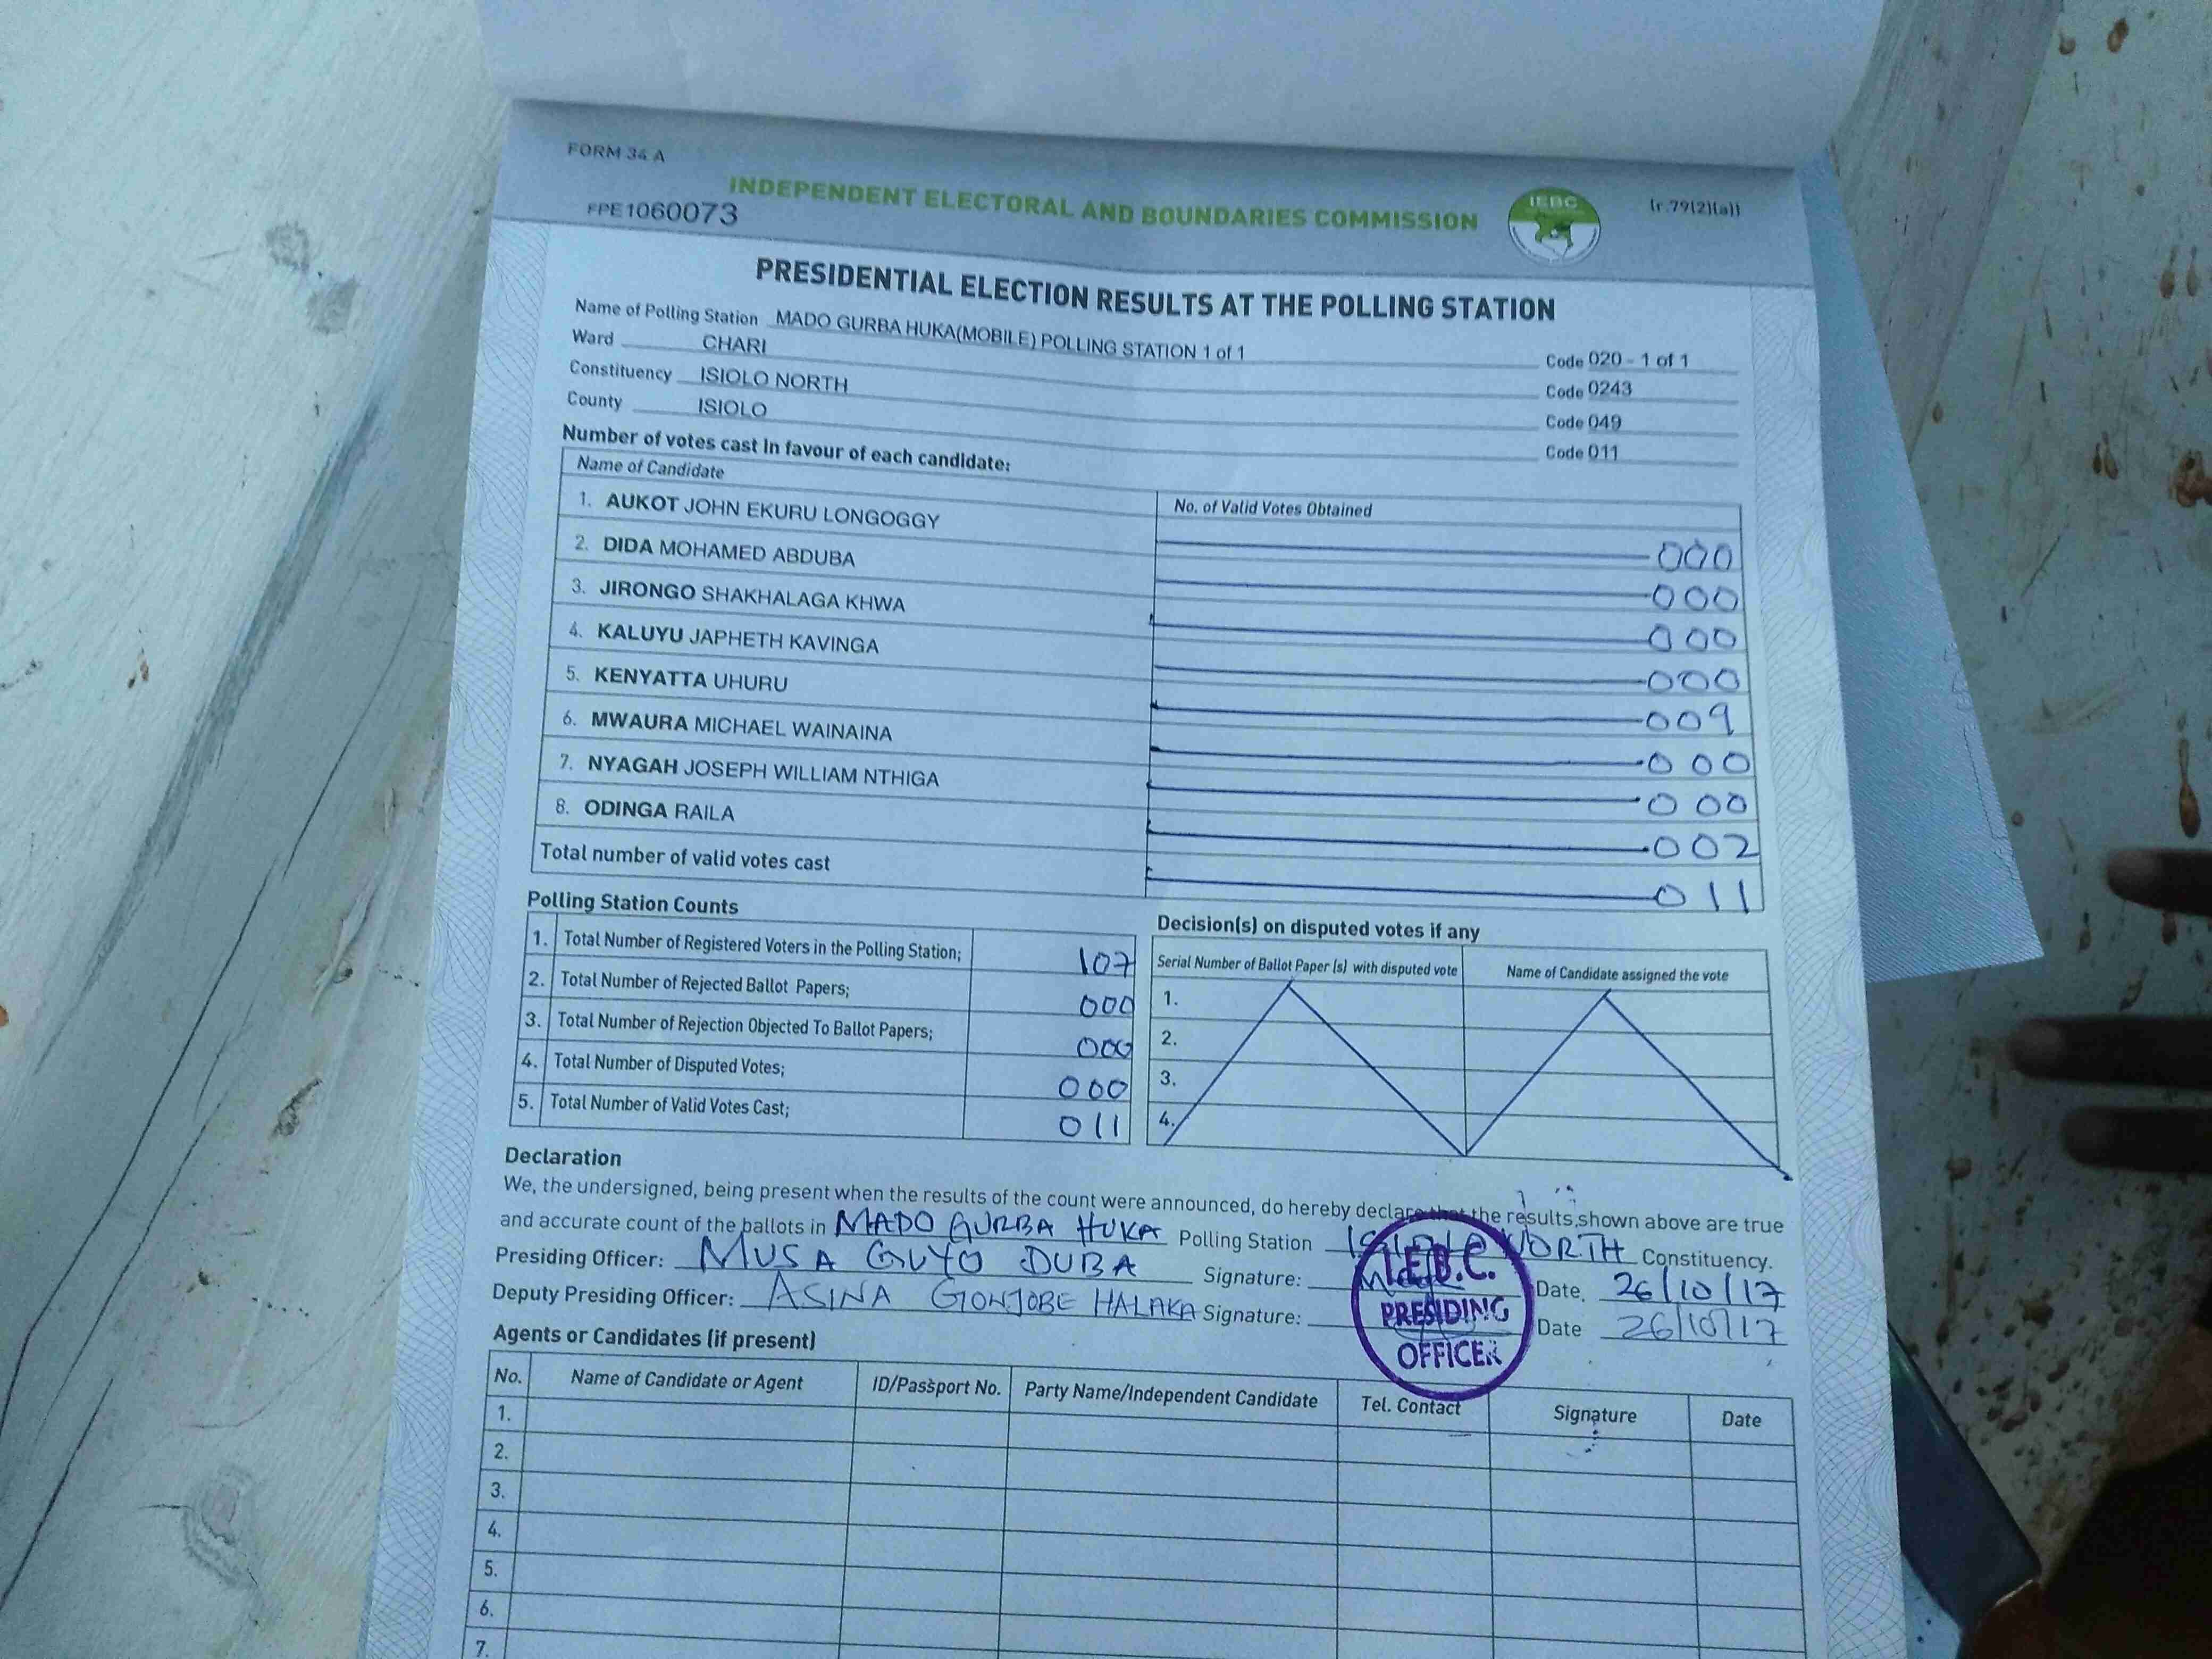 FORM 34 A
INDEPENDENT ELECTORAL AND BOUNDARIES COMMISSION
IEBC
(r.79(2)(a))
FPE1060073
PRESIDENTIAL ELECTION RESULTS AT THE POLLING STATION
Name of Polling Station MADO GURBA HUKA(MOBILE) POLLING STATION 1 of 1 Code 020 - 1 of 1
Ward CHARI Code 0243
Constituency ISIOLO NORTH Code 049
County ISIOLO Code 011
Number of votes cast in favour of each candidate:
Name of Candidate No. of Valid Votes Obtained
1. AUKOT JOHN EKURU LONGOGGY 000
2. DIDA MOHAMED ABDUBA 000
3. JIRONGO SHAKHALAGA KHWA 000
4. KALUYU JAPHETH KAVINGA 000
5. KENYATTA UHURU 009
6. MWAURA MICHAEL WAINAINA 000
7. NYAGAH JOSEPH WILLIAM NTHIGA 000
8. ODINGA RAILA 002
Total number of valid votes cast 011
Polling Station Counts
1. Total Number of Registered Voters in the Polling Station; 107
2. Total Number of Rejected Ballot Papers; 000
3. Total Number of Rejection Objected To Ballot Papers; 000
4. Total Number of Disputed Votes; 000
5. Total Number of Valid Votes Cast; 011
Decision(s) on disputed votes if any
Serial Number of Ballot Paper (s) with disputed vote Name of Candidate assigned the vote
1.
2.
3.
4.
Declaration
We, the undersigned, being present when the results of the count were announced, do hereby declare that the results shown above are true
and accurate count of the ballots in MADO GURBA HUKA Polling Station ISIOLO NORTH Constituency.
Presiding Officer: MUSA GUYO DUBA Signature: Date. 26/10/17
Deputy Presiding Officer: ASINA GONJOBE HALAKA Signature: Date 26/10/17
I.E.B.C.
PRESIDING
OFFICER
Agents or Candidates (if present)
No. Name of Candidate or Agent ID/Passport No. Party Name/Independent Candidate Tel. Contact Signature Date
1.
2.
3.
4.
5.
6.
7.